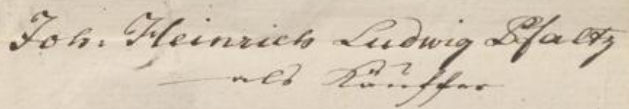 Joh. Heinrich Ludwig Pfaltz
als Käuffer